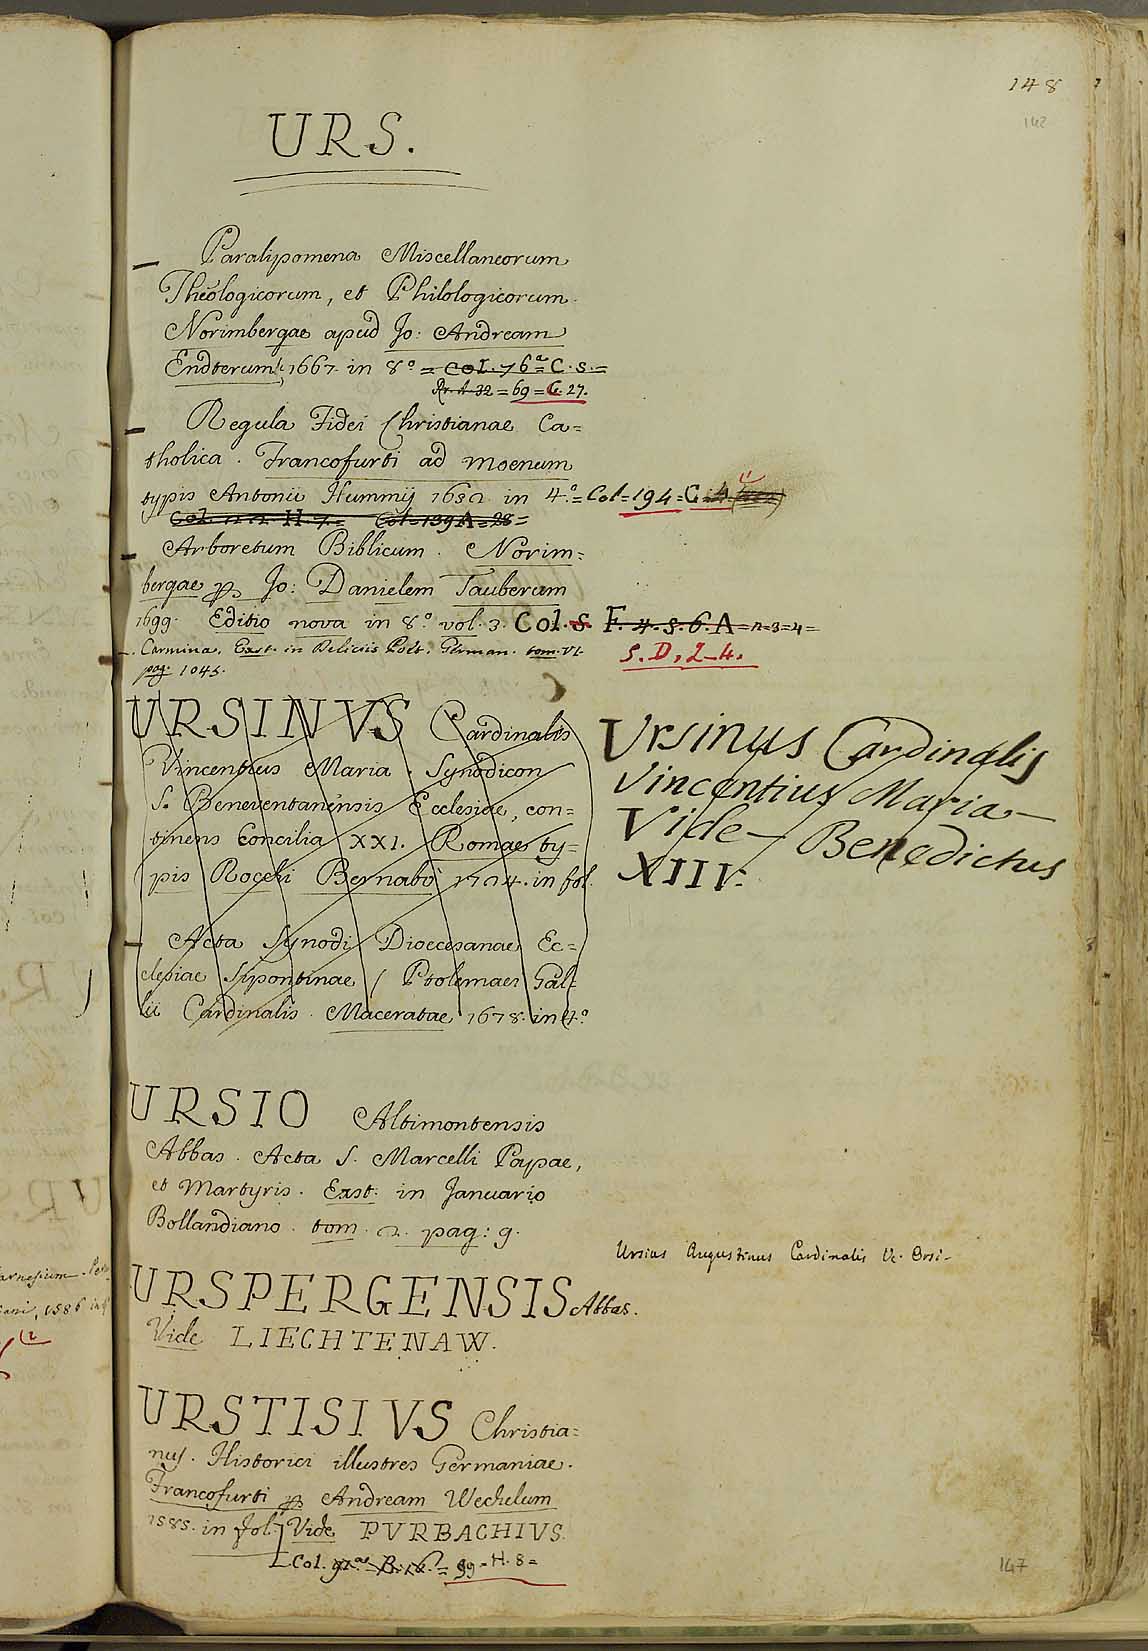 148
142
URS.
Paralipomena Miscellaneorum
Theologicorum, et Philologicorum.
Norimbergae apud Jo: Andream
Endterum, 1667. in 8.° = Col. 76.a = C. s. =
Rr. A. 32 = 69 = C. 27.
Regula Fidei Christianae Ca=
tholica. Francofurti ad Moenum
typis Antonii Hummij 1652. in 4.° = Col = 194 = C.
Col. H. 7. = Col = 139 A = 28 =
Arboretum Biblicum. Norim=
bergae Jo: Danielem Tauberum
1699. Editio nova in 8.° vol. 3. Col. s. F. 4. 5. 6. A = 2 = 3 = 4 =
Carmina. Exst. in Deliciis Poët. German. tom. VI. S. D, 2-4.
pag. 1045.
URSINVS Cardinalis
Vincentius Maria. Synodicon
S. Beneventanensis Ecclesiae, con=
tinens Concilia XXI. Romae ty=
pis Rocchi Bernabò 1724. in fol.
Acta Synodi Dioecesanae Ec=
clesiae Sipontinae / Ptolemaei Gal=
lii Cardinalis. Maceratae 1678. in 4.°
Ursinus Cardinalis
Vincentius Maria
Vide Benedictus
XIII.
URSIO Altimontensis
Abbas. Acta S. Marcelli Papae,
et Martyris. Exst: in Januario
Bollandiano. tom. 2. pag: 9.
Ursius Augustinus Cardinalis V. Orsi
URSPERGENSIS Abbas.
Vide LIECHTENAW.
URSTISIVS Christia=
nus. Historici illustres Germaniae.
Francofurti Andream Wechelum
1585. in fol. Vide PVRBACHIVS.
Col. = 99 = H. 8 =
147